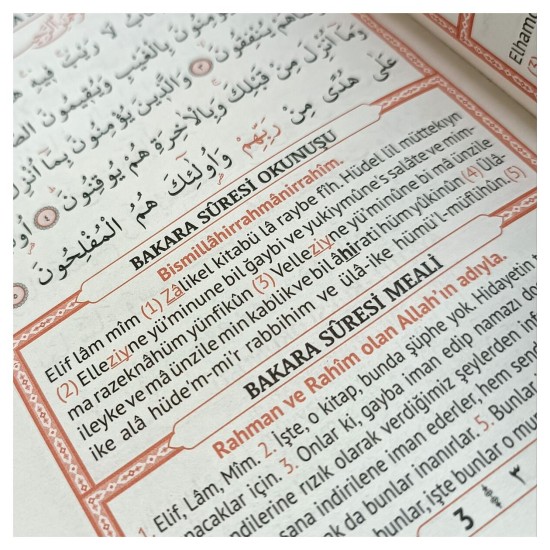 لَا رَيْبَ فِيهِ
يُؤْمِنُونَ بِالْغَيْبِ وَيُقِيمُونَ
يُنْفِقُونَ ﴿٣﴾ وَالَّذِينَ يُؤْمِنُونَ بِمَا أُنْزِلَ
وَمَا أُنْزِلَ مِنْ قَبْلِكَ وَبِالْآخِرَةِ هُمْ يُوقِنُونَ ﴿٤﴾
عَلَى هُدًى مِنْ رَبِّهِمْ وَأُولَٰئِكَ هُمُ الْمُفْلِحُونَ
BAKARA SÛRESİ OKUNUŞU
Bismillâhirrahmânirrahîm.
Elif lâm mîm (1) Zâlikel kitabü lâ raybe fîh. Hüdel lil müttekıyn
(2) Elleziyne yü'minune bil ğaybi ve yukıymûne's salâte ve mim-
ma razeknâhüm yünfikûn (3) Velleziyne yü'minûne bi mâ ünzile
ileyke ve mâ ünzile min kablik ve bil âhirati hüm yûkinûn (4) Ülâ-
ike alâ hüde'm-mi'r rabbihim ve ülâ-ike hümü'l-müflihûn. (5)
BAKARA SÛRESİ MEALİ
Rahman ve Rahîm olan Allah'ın adıyla.
1. Elif, Lâm, Mîm. 2. İşte, o kitap, bunda şüphe yok. Hidayetin
nacaklar için. 3. Onlar ki, gayba iman edip namazı
ndilerine rızık olarak verdiğimiz şeylerden
sana indirilene iman ederler, hem
da bunlar inanırlar. 5. Bunlar
bunlar, işte bunlar o
3 ٣
Elhamd